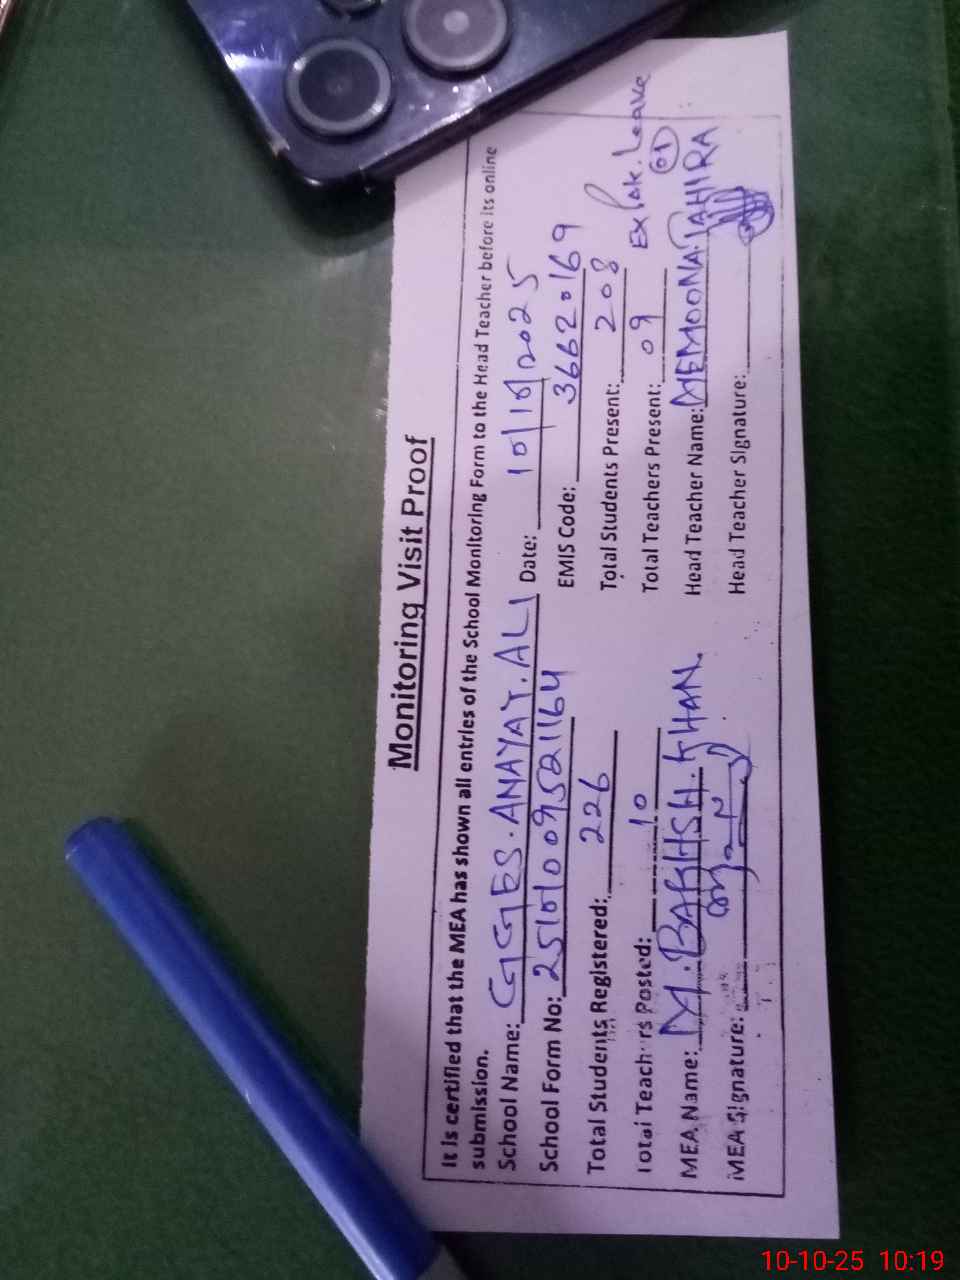 Monitoring Visit Proof
It is certified that the MEA has shown all entries of the School Monitoring Form to the Head Teacher before its online
submission.
School Name: GGES. ANAYAT. ALI Date: 10/10/2025
School Form No: 25101009521164 EMIS Code: 36620169
Total Students Registered: 226 Total Students Present: 208
Total Teachers Posted: 10 Total Teachers Present: 09 Ex Pak. Leave 01
MEA Name: M. BAKHSH. KHAN. Head Teacher Name: MEMOONA TAHIRA
MEA Signature: Head Teacher Signature:
10-10-25 10:19